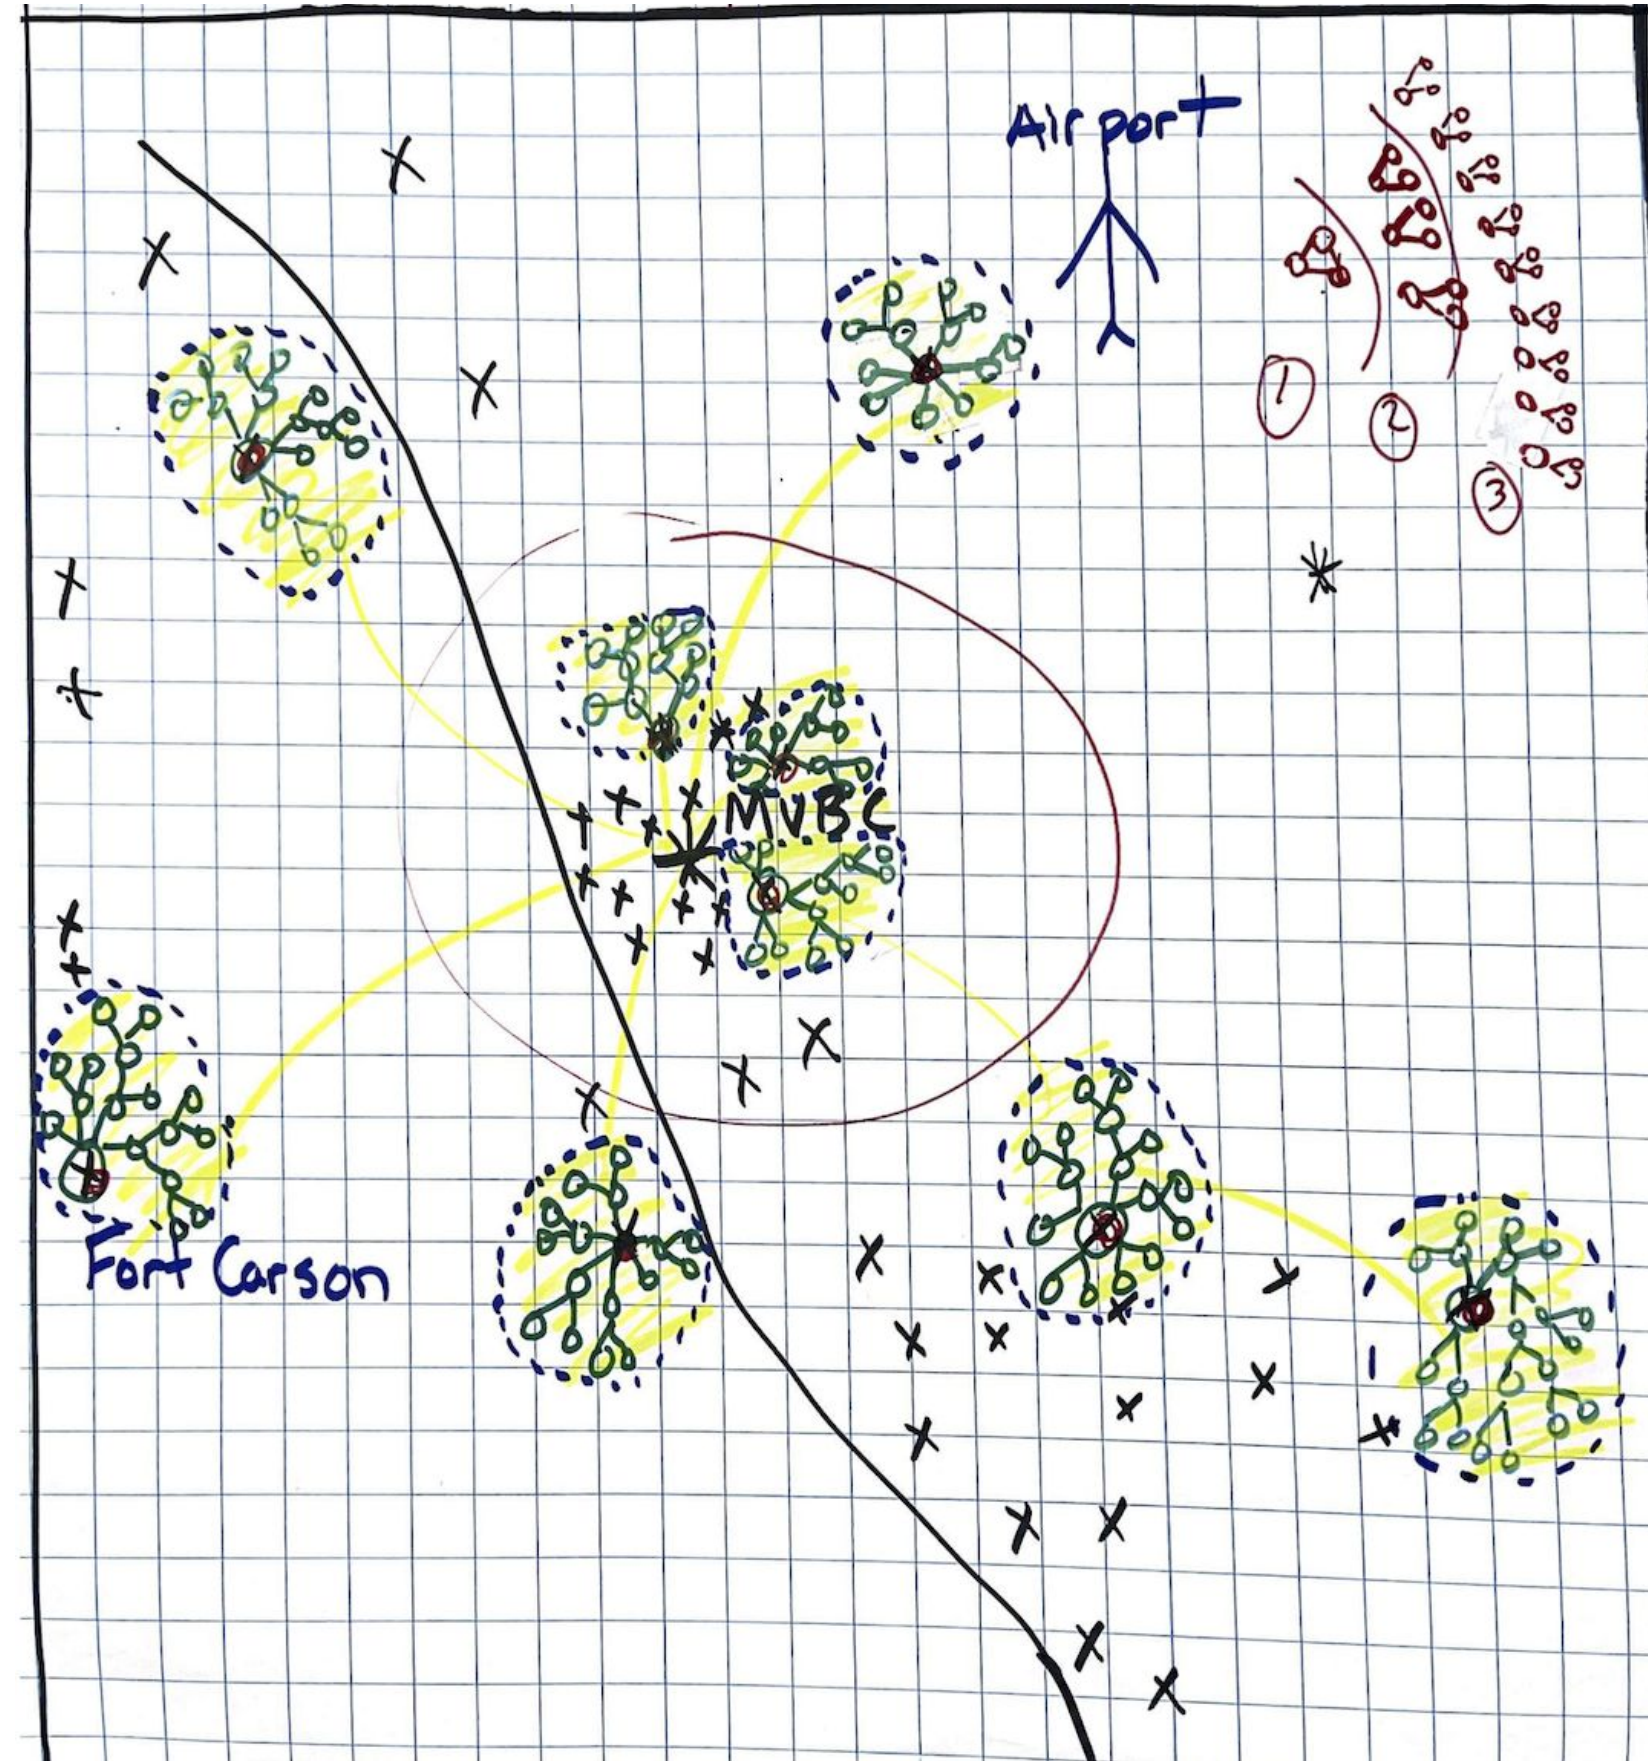 Airport
1
2
3
MVBC
Fort Carson